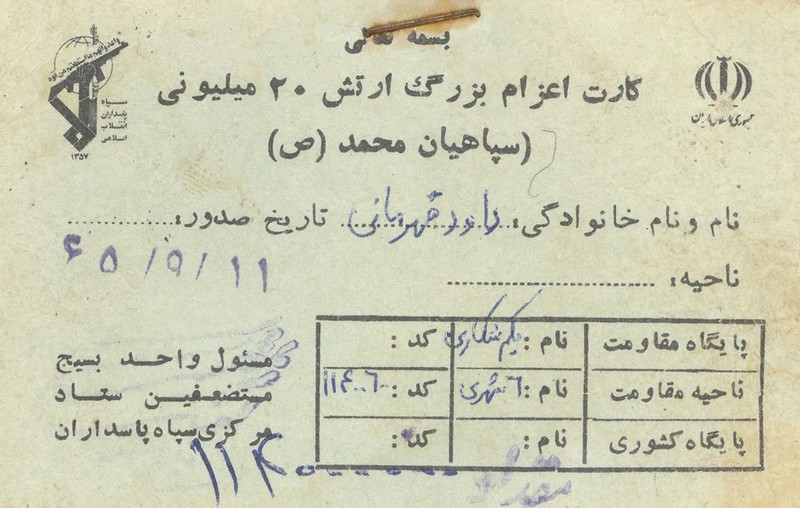 بسمه تعالی
کارت اعزام بزرگ ارتش ۲۰ میلیونی
(سپاهیان محمد (ص)
سپاه
پاسداران
انقلاب
اسلامی
۱۳۵۷
جمهوری اسلامی ایران
نام و نام خانوادگی: داود قهرمانی تاریخ صدور:
۶۵/۹/۱۱
ناحیه:
پایگاه مقاومت نام: کد:
ناحیه مقاومت نام: ۶ کد: ۱۱۴۰۰۶۰
پایگاه کشوری نام: کد:
مسئول واحد بسیج
مستضعفین ستاد
مرکزی سپاه پاسداران
مقداد